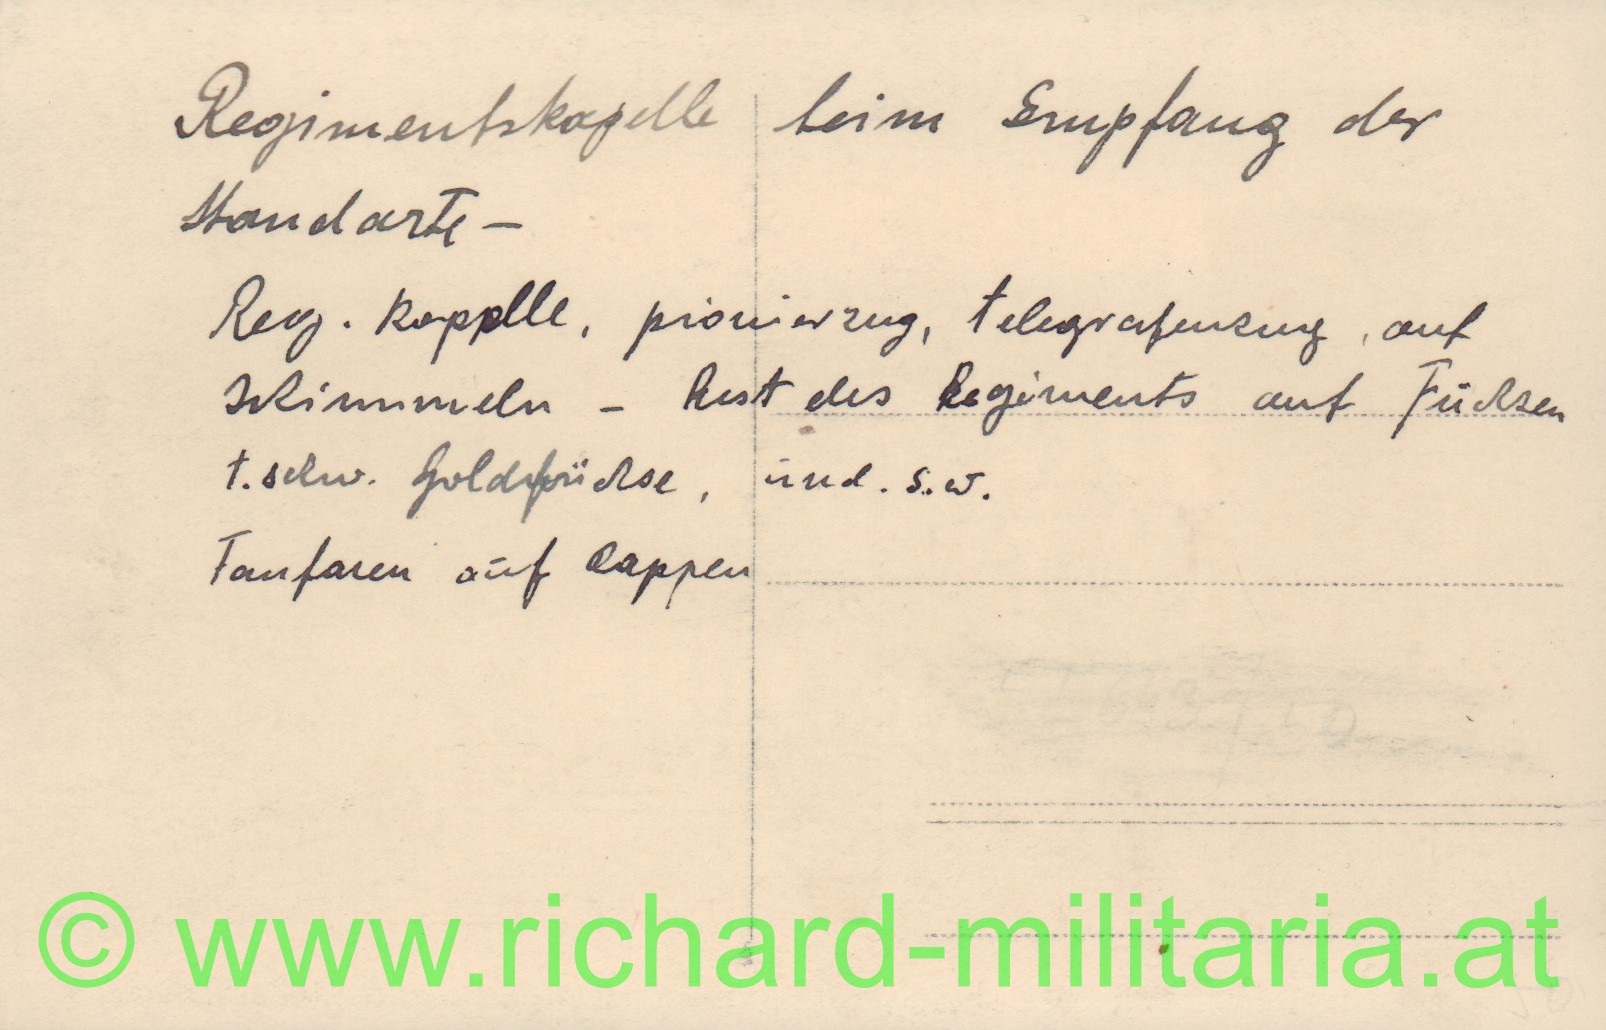 Regimentskapelle beim Empfang der
Standarte –
Reg. Kappelle, pionierzug, telegrafenzug, auf
Schimmeln – Rest des Regiments auf Füchsen
t. schw. Goldfüchse, und. s.w.
Fanfaren auf Rappen
© www.richard-militaria.at